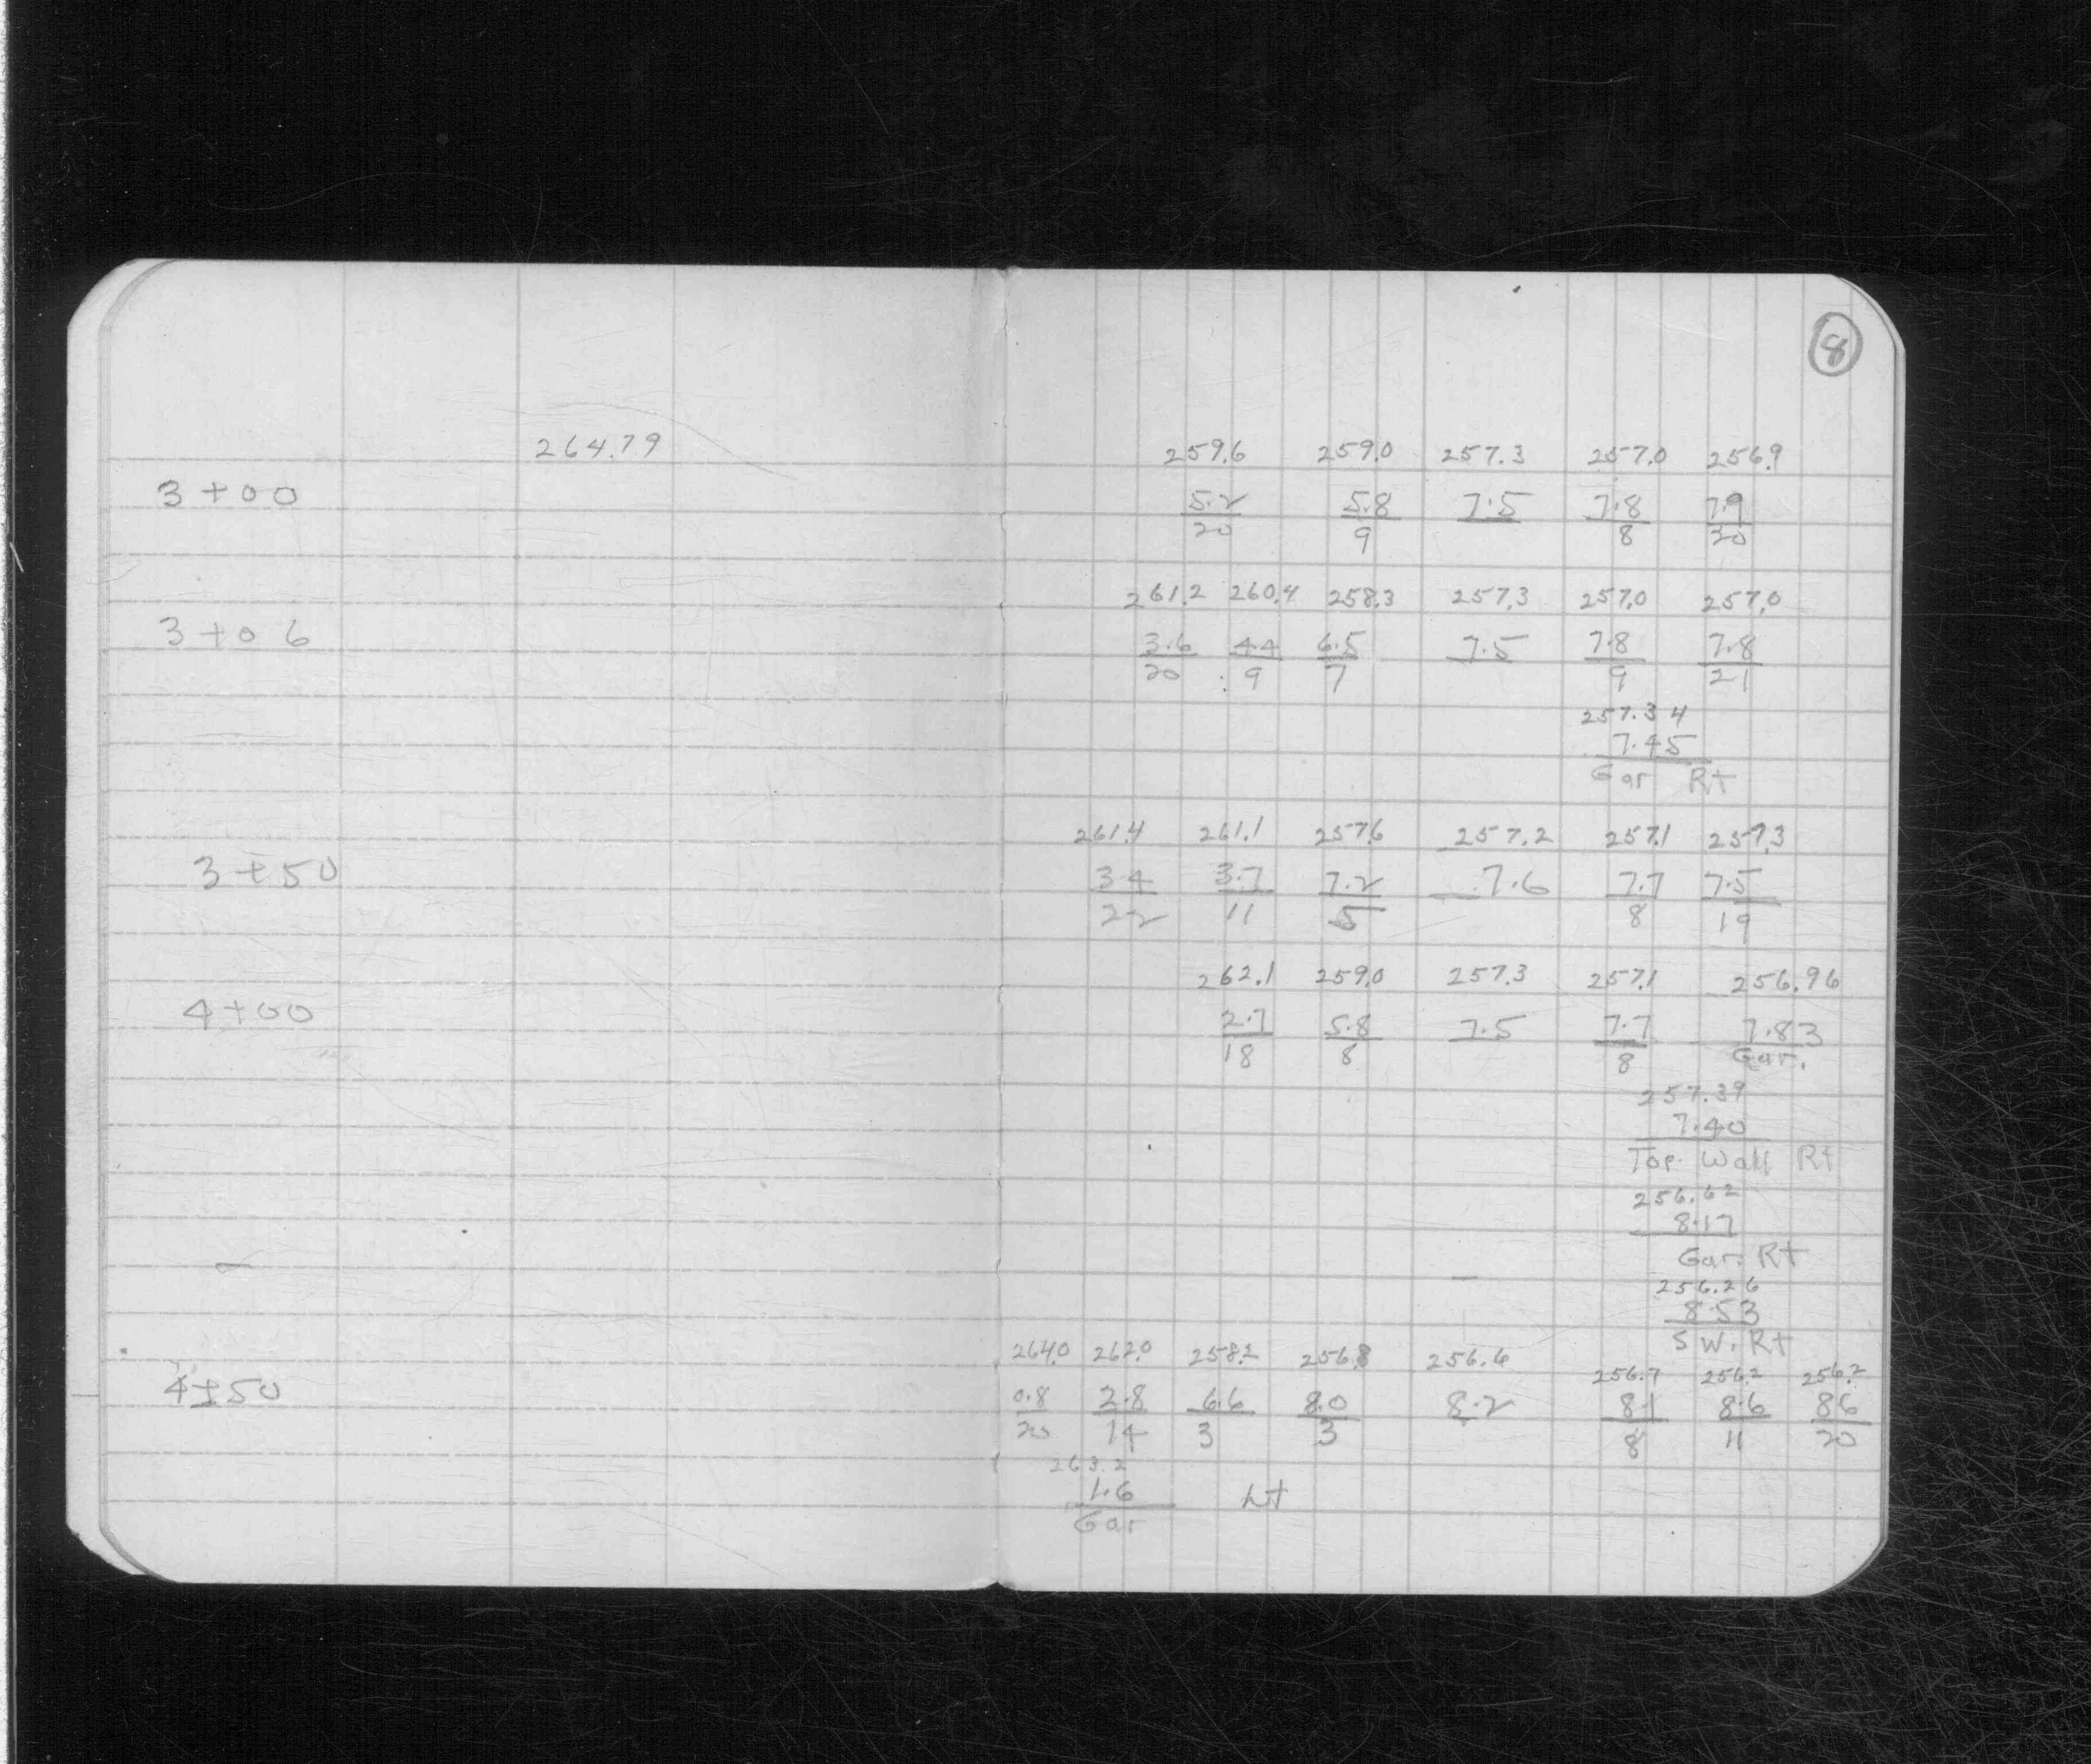 8
264.79 259.6 259.0 257.3 257.0 256.9
3+00 5.2 5.8 7.5 7.8 7.9
20 9 8 20
261.2 260.4 258.3 257.3 257.0 257.0
3+06 3.6 4.4 6.5 7.5 7.8 7.8
20 9 7 9 21
257.34
7.45
Gar Rt
261.4 261.1 257.6 257.2 257.1 257.3
3+50 3.4 3.7 7.2 7.6 7.7 7.5
22 11 5 8 19
262.1 259.0 257.3 257.1 256.96
4+00 2.7 5.8 7.5 7.7 7.83
18 8 8 Gar.
257.39
7.40
Top Wall Rt
256.62
8.17
Gar. Rt
256.26
8.53
S W. Rt
264.0 262.0 258.2 256.8 256.6 256.7 256.2 256.2
4+50 0.8 2.8 6.6 8.0 8.2 8.1 8.6 8.6
20 14 3 3 8 11 20
263.2
1.6 Lt
Gar